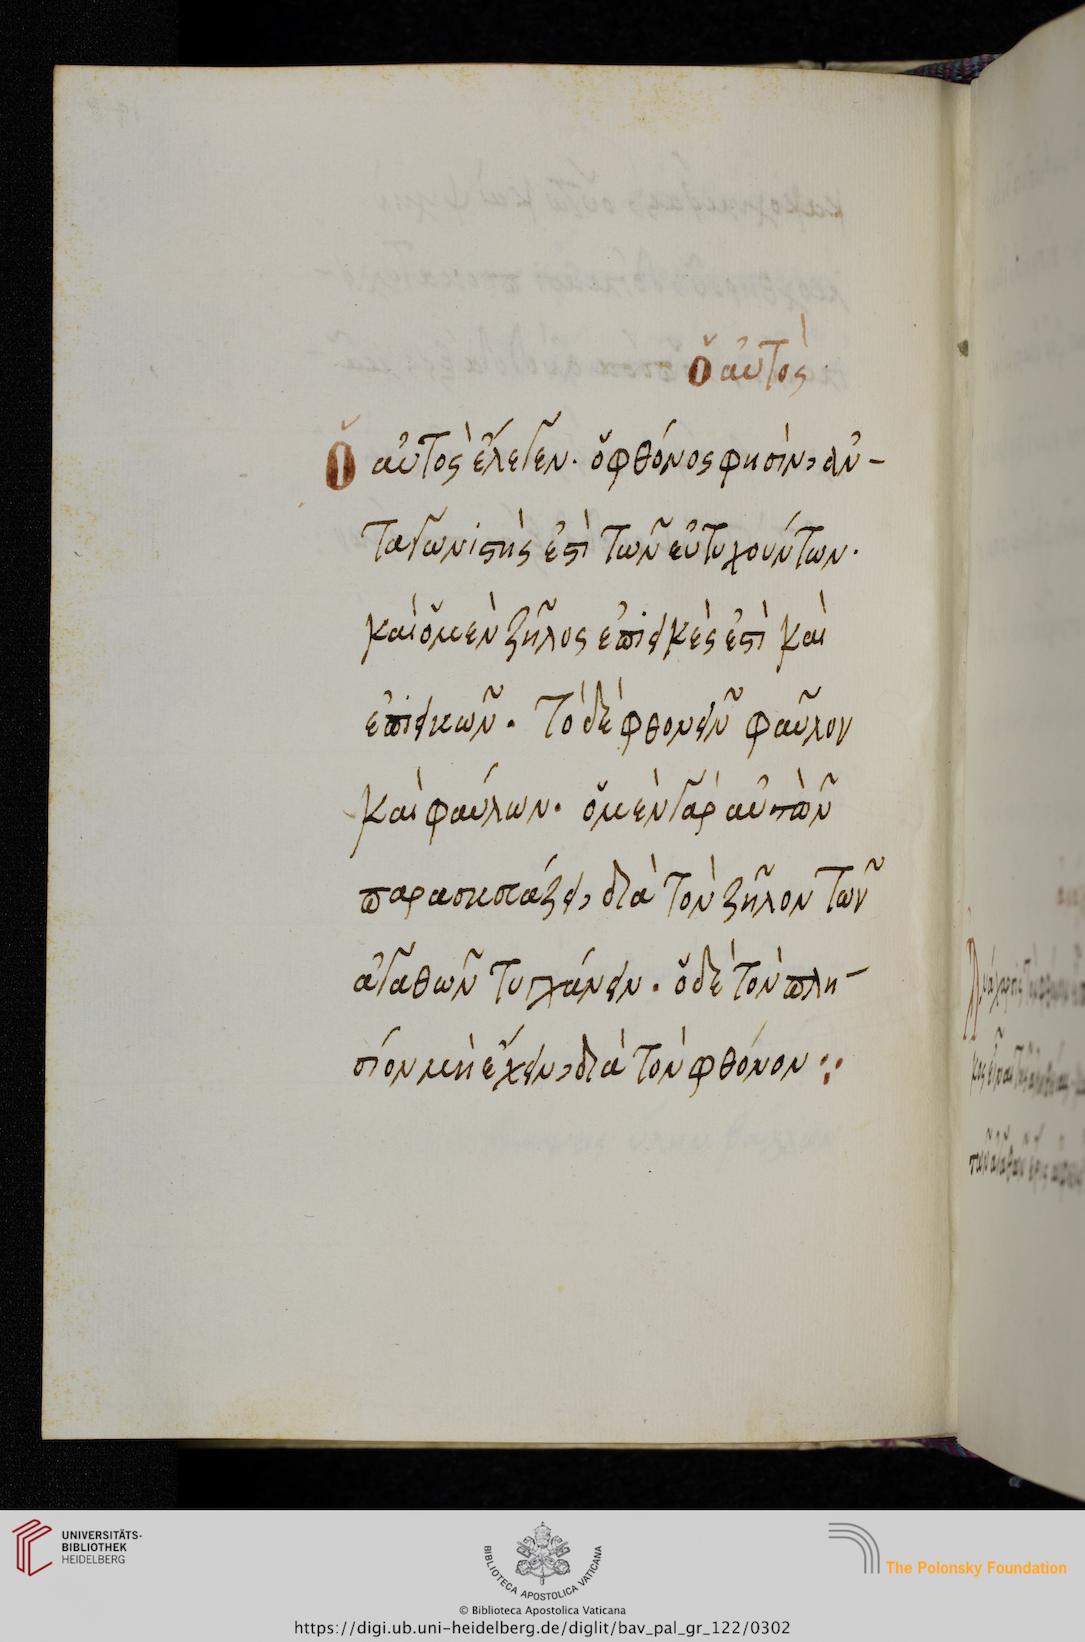 ὁ αὐτὸς
Ὁ αὐτὸς ἔλεγεν. ὁ φθόνος φησὶν, ἀν-
ταγωνιστής ἐστὶ τῶν εὐτυχούντων.
καὶ ὁ μὲν ζῆλος ἐπιεικὲς ἐστὶ καὶ
ἐπιεικῶν. τὸ δὲ φθονεῖν φαῦλον
καὶ φαύλων. ὁ μὲν γὰρ αὐτὸν
παρασκευάζει, διὰ τὸν ζῆλον τῶν
ἀγαθῶν τυγχάνειν. ὁ δὲ τὸν πλη-
σίον μὴ ἔχειν, διὰ τὸν φθόνον :·
UNIVERSITÄTS-
BIBLIOTHEK
HEIDELBERG
BIBLIOTECA APOSTOLICA VATICANA
The Polonsky Foundation
© Biblioteca Apostolica Vaticana
https://digi.ub.uni-heidelberg.de/diglit/bav_pal_gr_122/0302